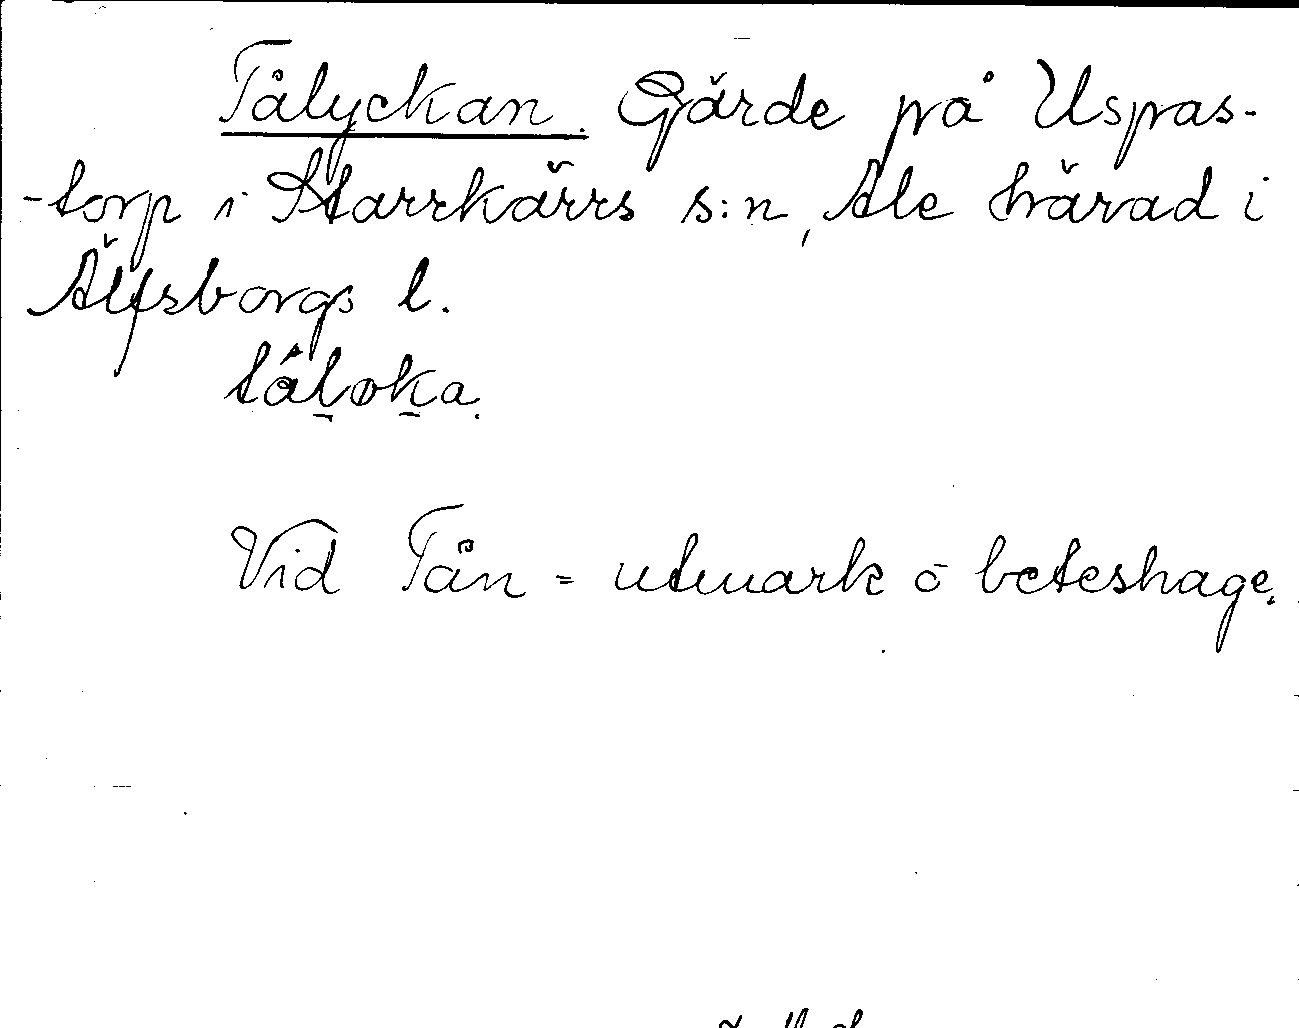 Tålyckan. Gärde på Uspas-
-torp i Starrkärrs s:n, Ale härad i
Älfsborgs l.
tåløka.
Vid Tån = utmark o beteshage.